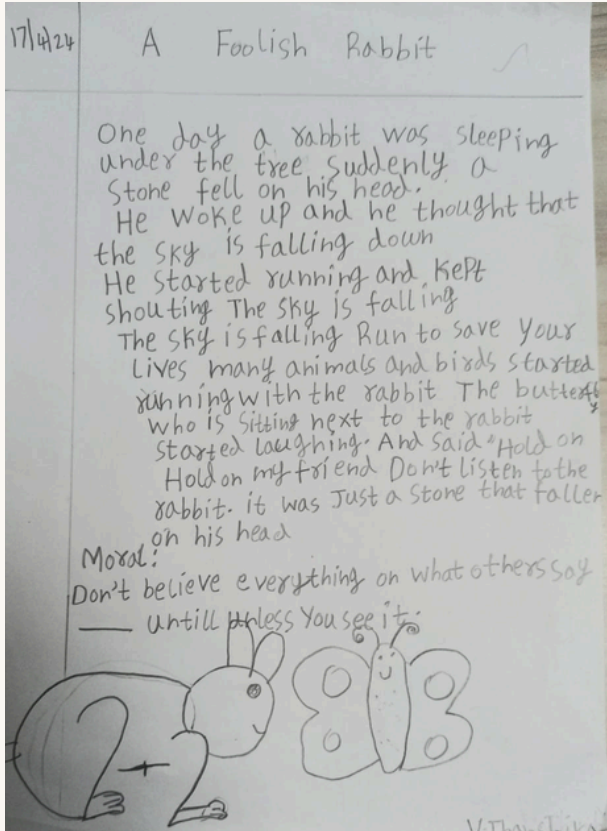 17/4/24
A Foolish Rabbit
One day a rabbit was sleeping
under the tree suddenly a
Stone fell on his head.
He woke up and he thought that
the sky is falling down
He started running and kept
shouting The sky is falling
The sky is falling Run to save your
lives many animals and birds started
running with the rabbit The butterfly
who is sitting next to the rabbit
started laughing. And said "Hold on
Hold on my friend Don't listen to the
rabbit. it was Just a stone that fallen
on his head
Moral:
Don't believe everything on what others say
— untill unless you see it.
2+2